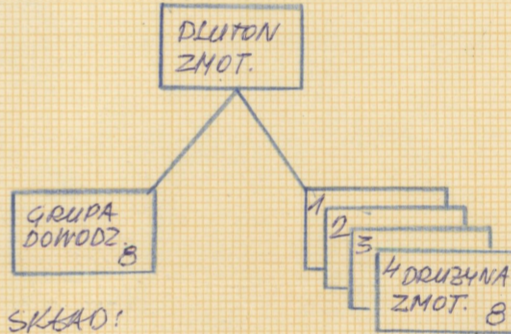 PLUTON
ZMOT.
GRUPA
DOWODZ.
8
1
2
3
4 DRUŻYNA
ZMOT. 8
SKŁAD: